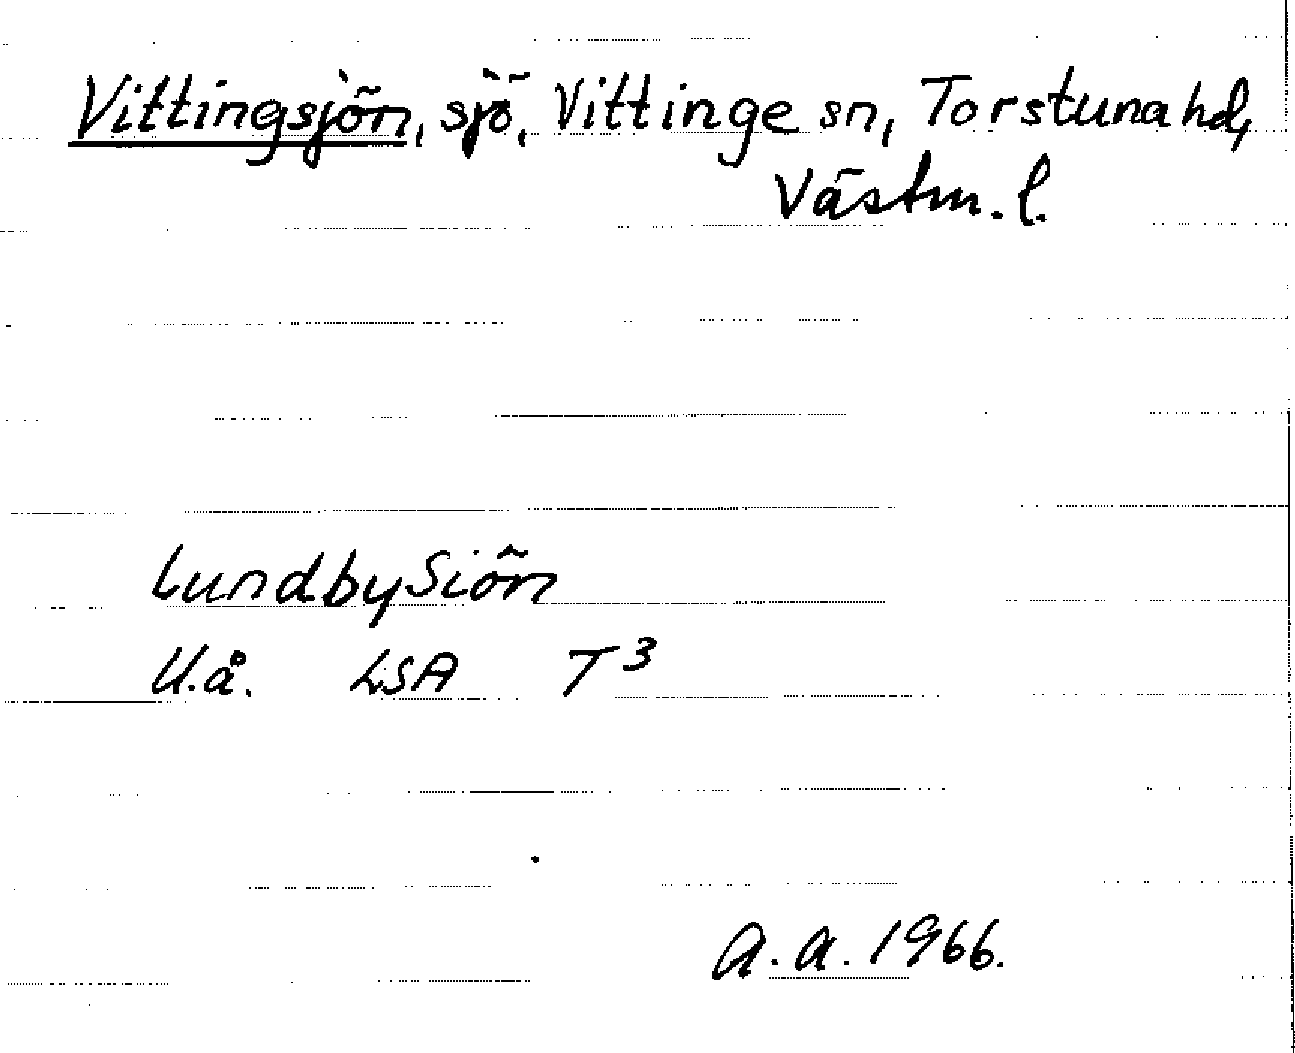 Vittingsjön, sjö, Vittinge sn, Torstuna hd,
Västm. l.
Lundby Siön
U.å. LSA T3
A.A. 1966.